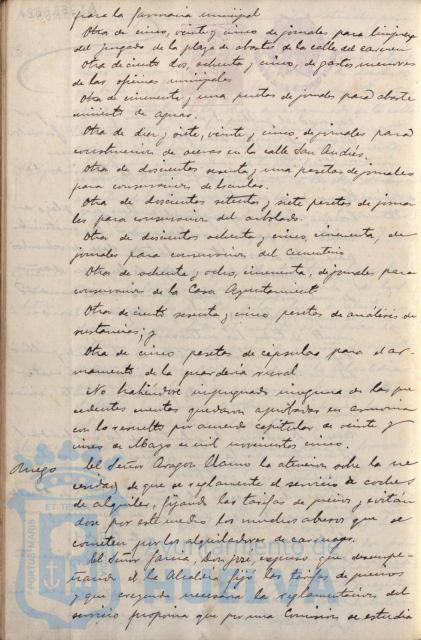 para la farmacia municipal
Otra de cinco, veinte y cinco de jornales para limpieza
del juzgado de la plaza de abastos de la calle del
Otra de ciento dos, ochenta y cinco, de gastos menores
de las oficinas municipales
Otra de cincuenta y una pesetas de jornales para abaste
cimiento de aguas.
Otra de diez y siete, veinte y cinco, de jornales para
construccion de aceras en la calle San Andrés.
Otra de doscientos sesenta y una pesetas de jornales
para conservacion de
Otra de doscientos setenta y siete pesetas de jorna
les para conservacion del arbolado.
Otra de doscientos ochenta y cinco, cincuenta, de
jornales para conservacion del cementerio
Otra de ochenta y ocho, cincuenta, de jornales para
conservacion de la Casa Ayuntamiento
Otra de ciento sesenta y cinco pesetas de análisis de
sustancias; y
Otra de cinco pesetas de cápsulas para el ar-
mamento de la guardería rural
No habiéndose impugnado ninguna de las pre
cedentes cuentas quedaron aprobadas en armonia
con lo resuelto por acuerdo capitular de veinte y
cinco de Mayo de mil novecientos cinco.
Ruego
El Señor Aragon llamo la atencion sobre la ne
cesidad de que se reglamente el servicio de coches
de alquiler, fijando las tarifas de precios y evitán
dose por este medio los muchos abusos que se
cometen por los alquiladores de carruages.
El Señor Garcia, Don José, expuso que desempe-
ñando el la Alcaldia fijó las tarifas de precios
y que creyendo necesaria la reglamentacion del
servicio proponia que por una Comision se estudia
PORTUS MARIS
ET TE
Ayuntamiento de